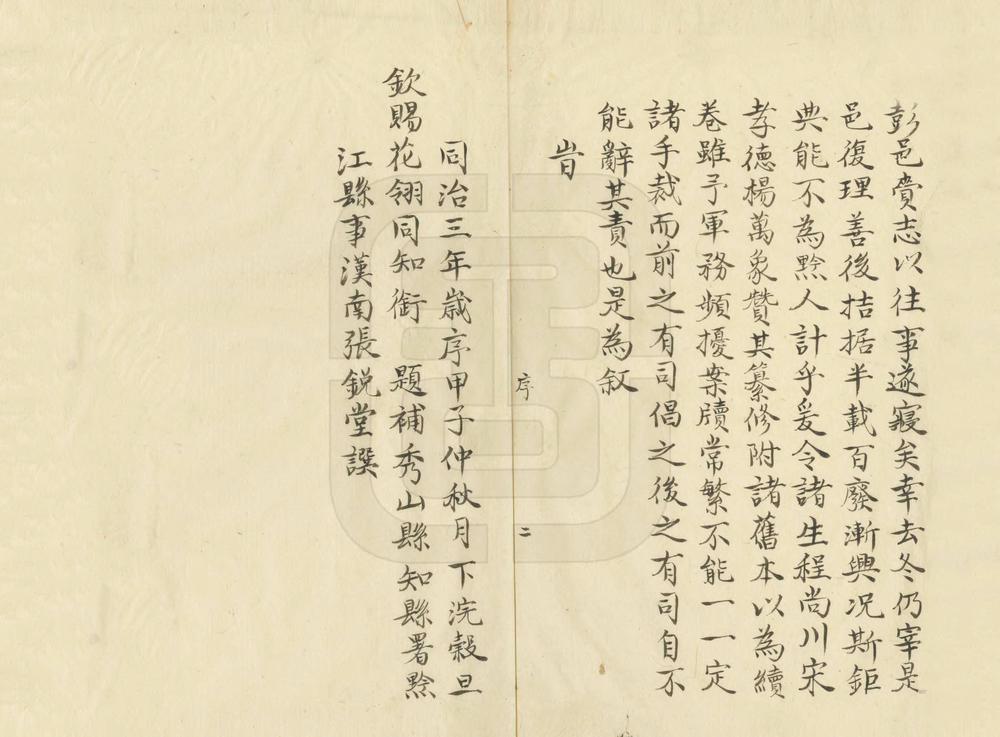 彭邑賫志以往事遂寢矣幸去冬仍宰是
邑復理善後拮据半載百廢漸興况斯鉅
典能不為黔人計乎爰令諸生程尚川宋
孝德楊萬象贊其纂修附諸舊本以為續
卷雖予軍務頻擾案牘常繁不能一一定
諸手裁而前之有司倡之後之有司自不
能辭其責也是為叙
旹
序
二
同治三年歲序甲子仲秋月下浣穀旦
欽賜花翎同知銜 題補秀山縣知縣署黔
江縣事漢南張銳堂譔